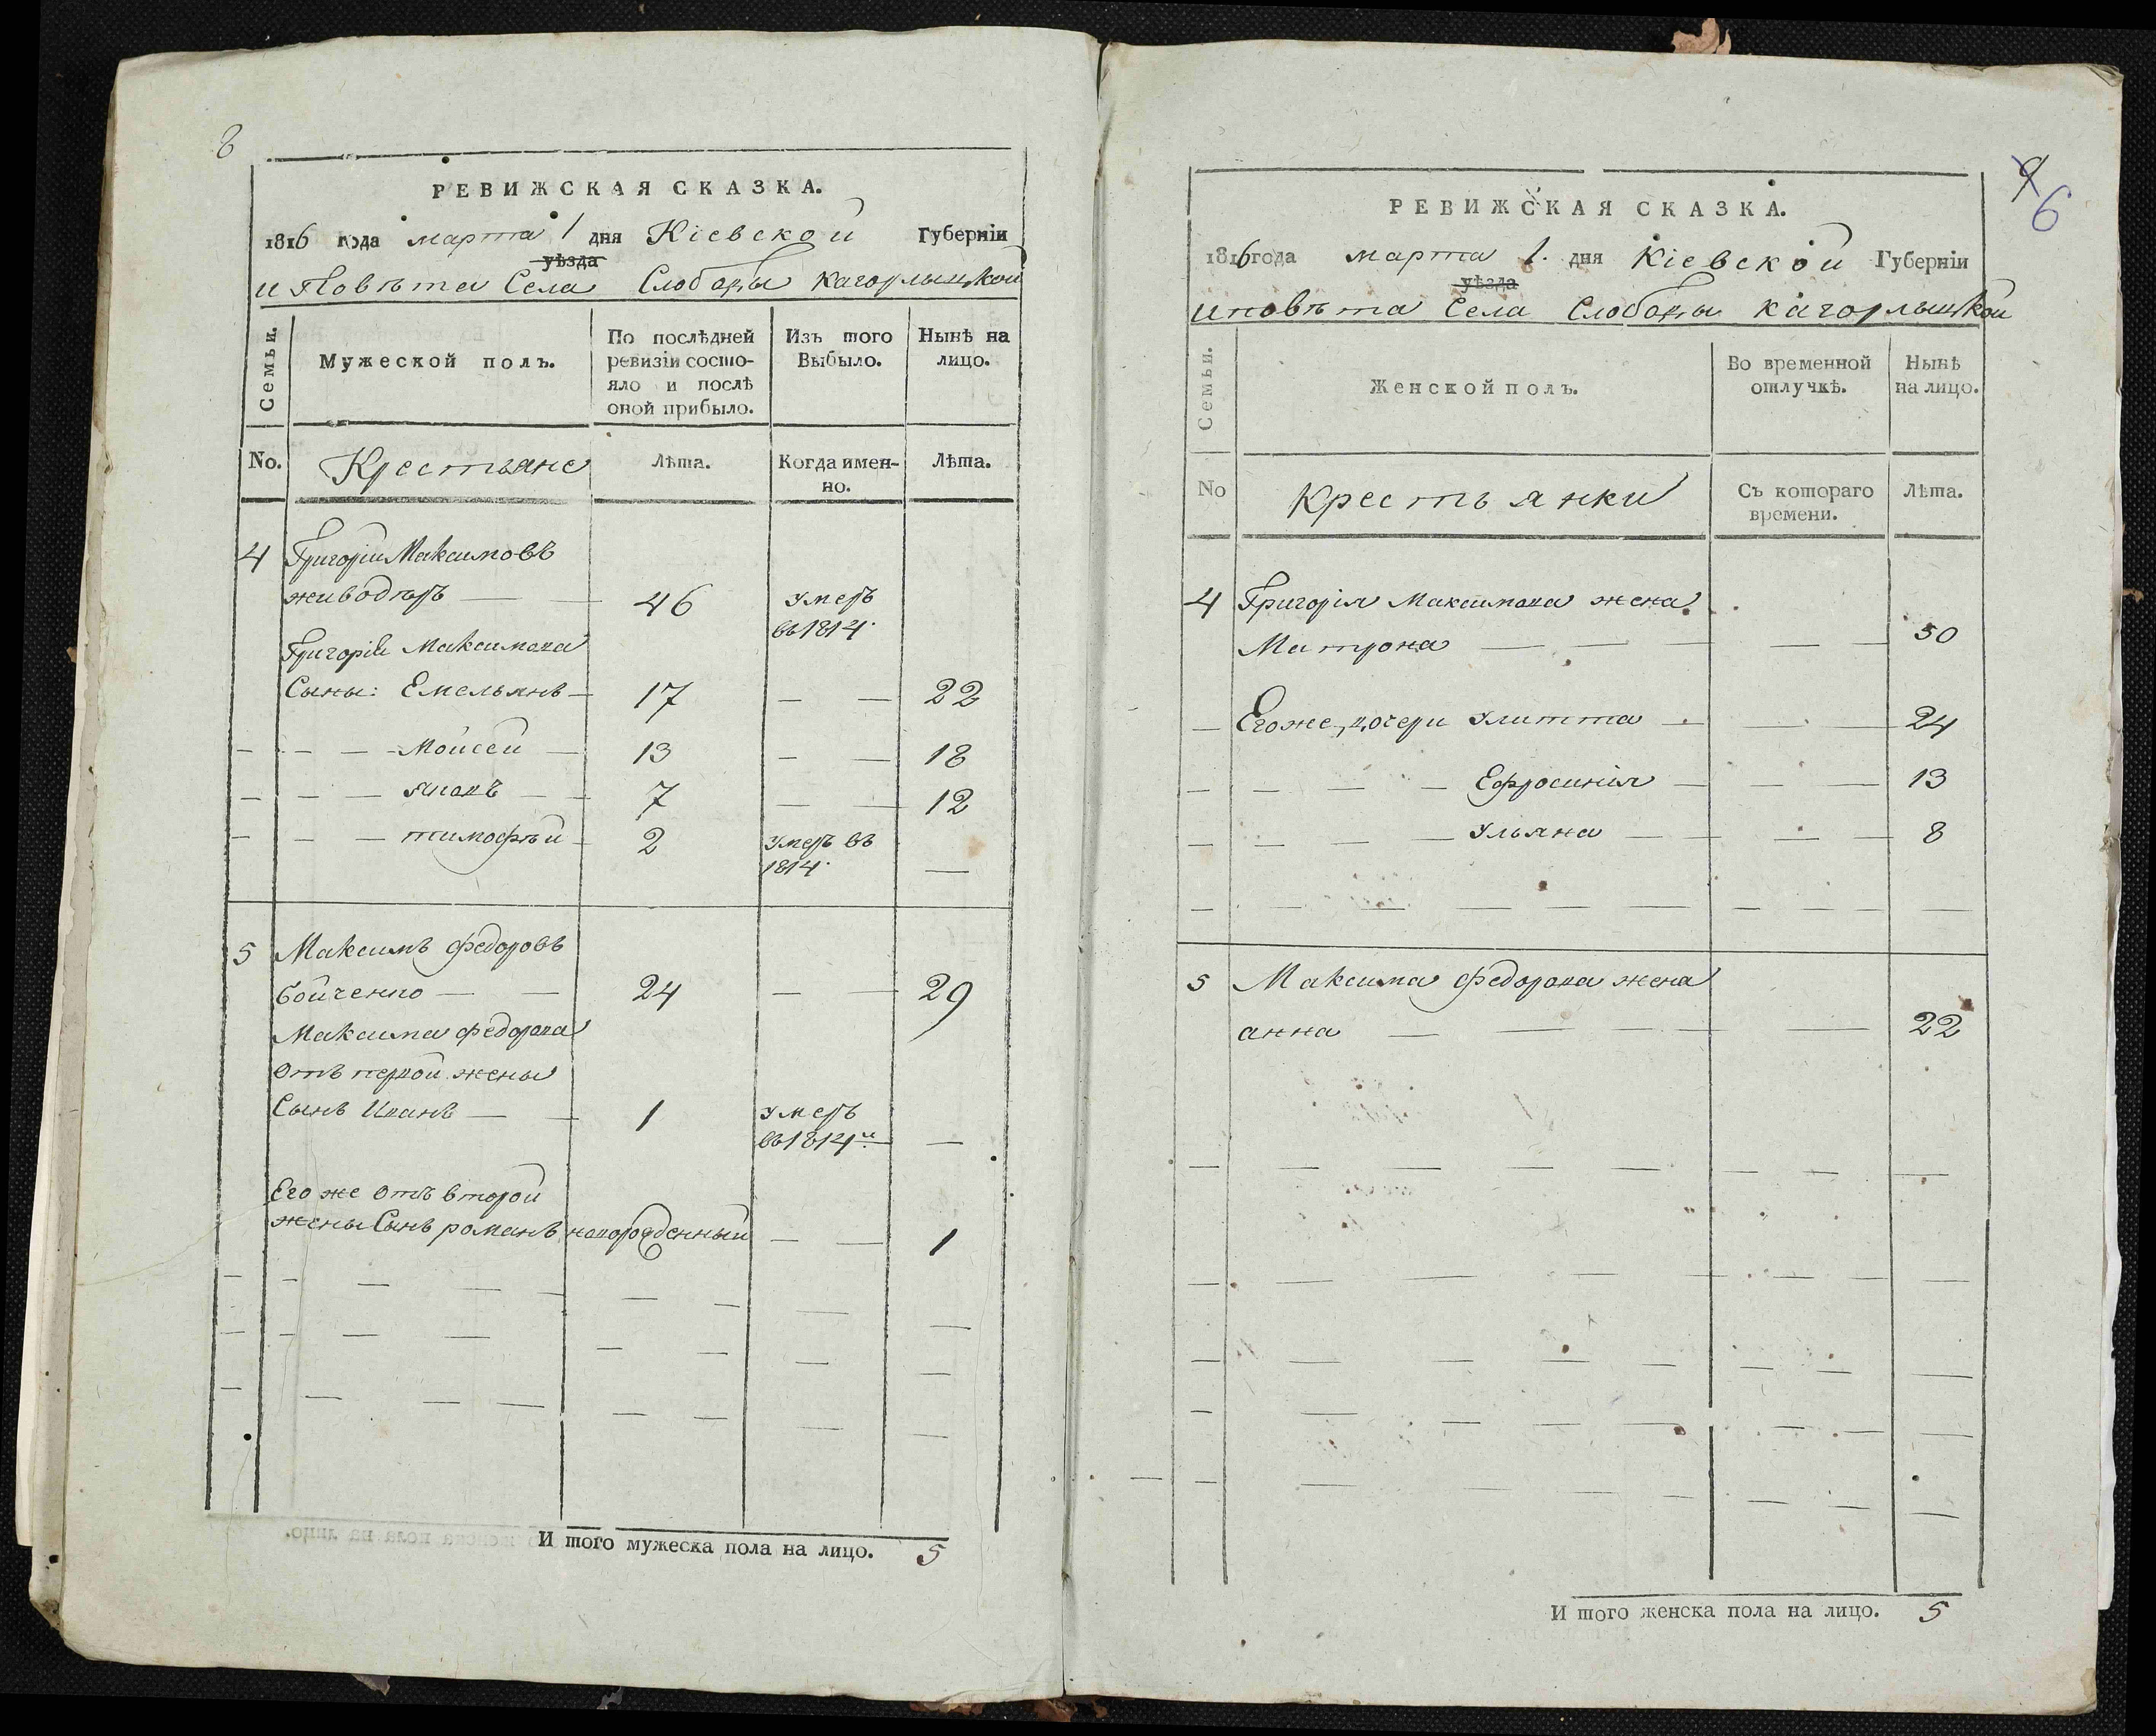 8
РЕВИЖСКАЯ СКАЗКА.
1816 года марта 1 дня Кіевской Губерніи
уѣзда
и Повѣта Села Слободы Кагорлыцкой
Семьи.
Мужеской полъ.
По послѣдней
ревизіи состо-
яло и послѣ
оной прибыло.
Изъ того
Выбыло.
Нынѣ на
лицо.
No.
Крестьяне
Лѣта.
Когда имен-
но.
Лѣта.
4 Григорій Максимовъ
живодѣръ — — 46 умеръ
въ 1814.
Григорія Максимова
Сыны: Емельянъ — 17 — — 22
— — — — Мойсей — 13 — — 18
— — — Яковъ — — 7 — — 12
— — — тимофѣй — 2 умеръ въ
1814. —
5 Максимъ Федоровъ
бойченко — — 24 — — 29
Максима Федорова
отъ первой жены
Сынъ Иванъ — — 1 умеръ
въ 1814м —
Его же отъ второй
жены Сынъ романъ новорожденный — — 1
И того мужеска пола на лицо. 5
9
6
РЕВИЖСКАЯ СКАЗКА.
1816 года марта 1. дня Кіевской Губерніи
уѣзда
и повѣта Села Слободы Кагорлыцкой
Семьи.
Женской полъ.
Во временной
отлучкѣ.
Нынѣ
на лицо.
No
Крестьянки
Съ котораго
времени.
Лѣта.
4 Григорія Максимова жена
Матрона — — — — — 50
— Егоже, дочери Улитта — — — 24
— — — — — Ефросинія — — — 13
— — — — — Ульяна — — — — 8
5 Максима Федорова жена
анна — — — — — 22
И того женска пола на лицо. 5